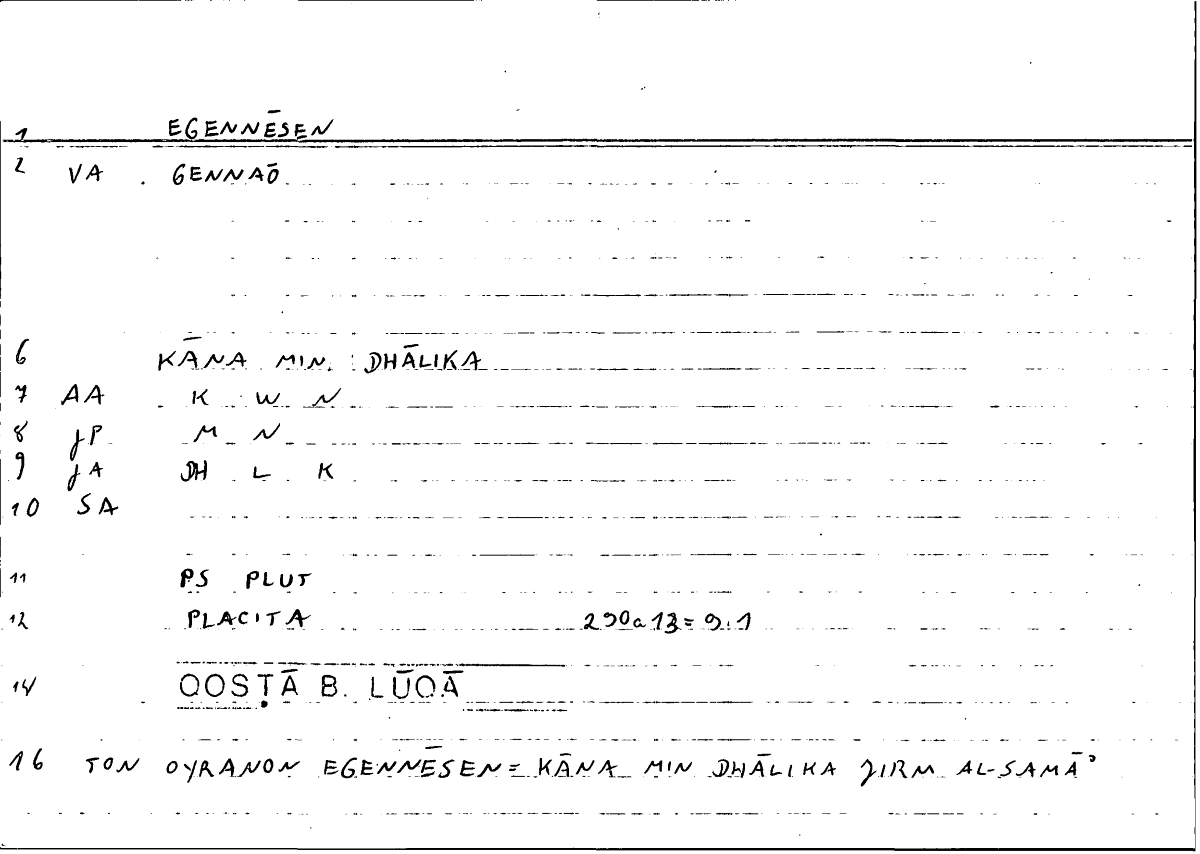 1 EGENNĒSEN
2 VA . GENNAŌ
6 KĀNA MIN DHĀLIKA
7 AA K W N
8 JP M N
9 JA DH L K
10 SA
11 PS PLUT
12 PLACITA 290a13=9.1
14 QOSṬĀ B. LŪQĀ
16 TON OYRANON EGENNĒSEN = KĀNA MIN DHĀLIKA JIRM AL-SAMĀʾ